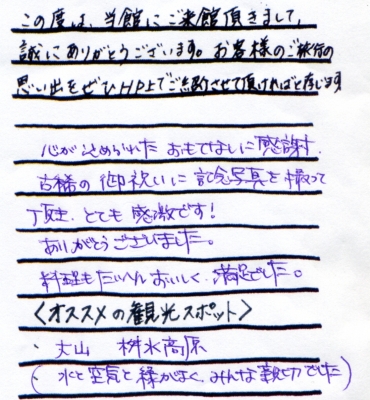 この度は、当館にご来館頂きまして、
誠にありがとうございます。お客様のご旅行の
思い出をぜひHP上でご紹介させて頂ければと存じます
心がこめられた おもてなしに感謝.
古稀の御祝いに記念写真を撮って
頂き、とても感激です!
ありがとうございました。
料理もたいへんおいしく、満足でした。
〈オススメの観光スポット〉
・大山 桝水高原
(水と空気と緑がよく、みんな親切でした)